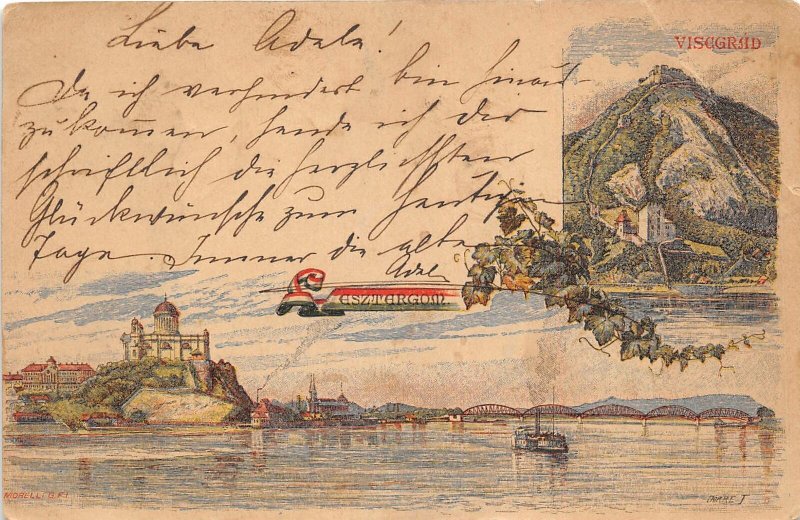 Liebe Adele!
VISEGRÁD
Da ich verhindert bin hinaus
zukommen, sende ich dir
schriftlich die herzlichsten
Glückwünsche zum heutigen
Tage. Immer die alte
Adel
ESZTERGOM
MORELLI G. F.